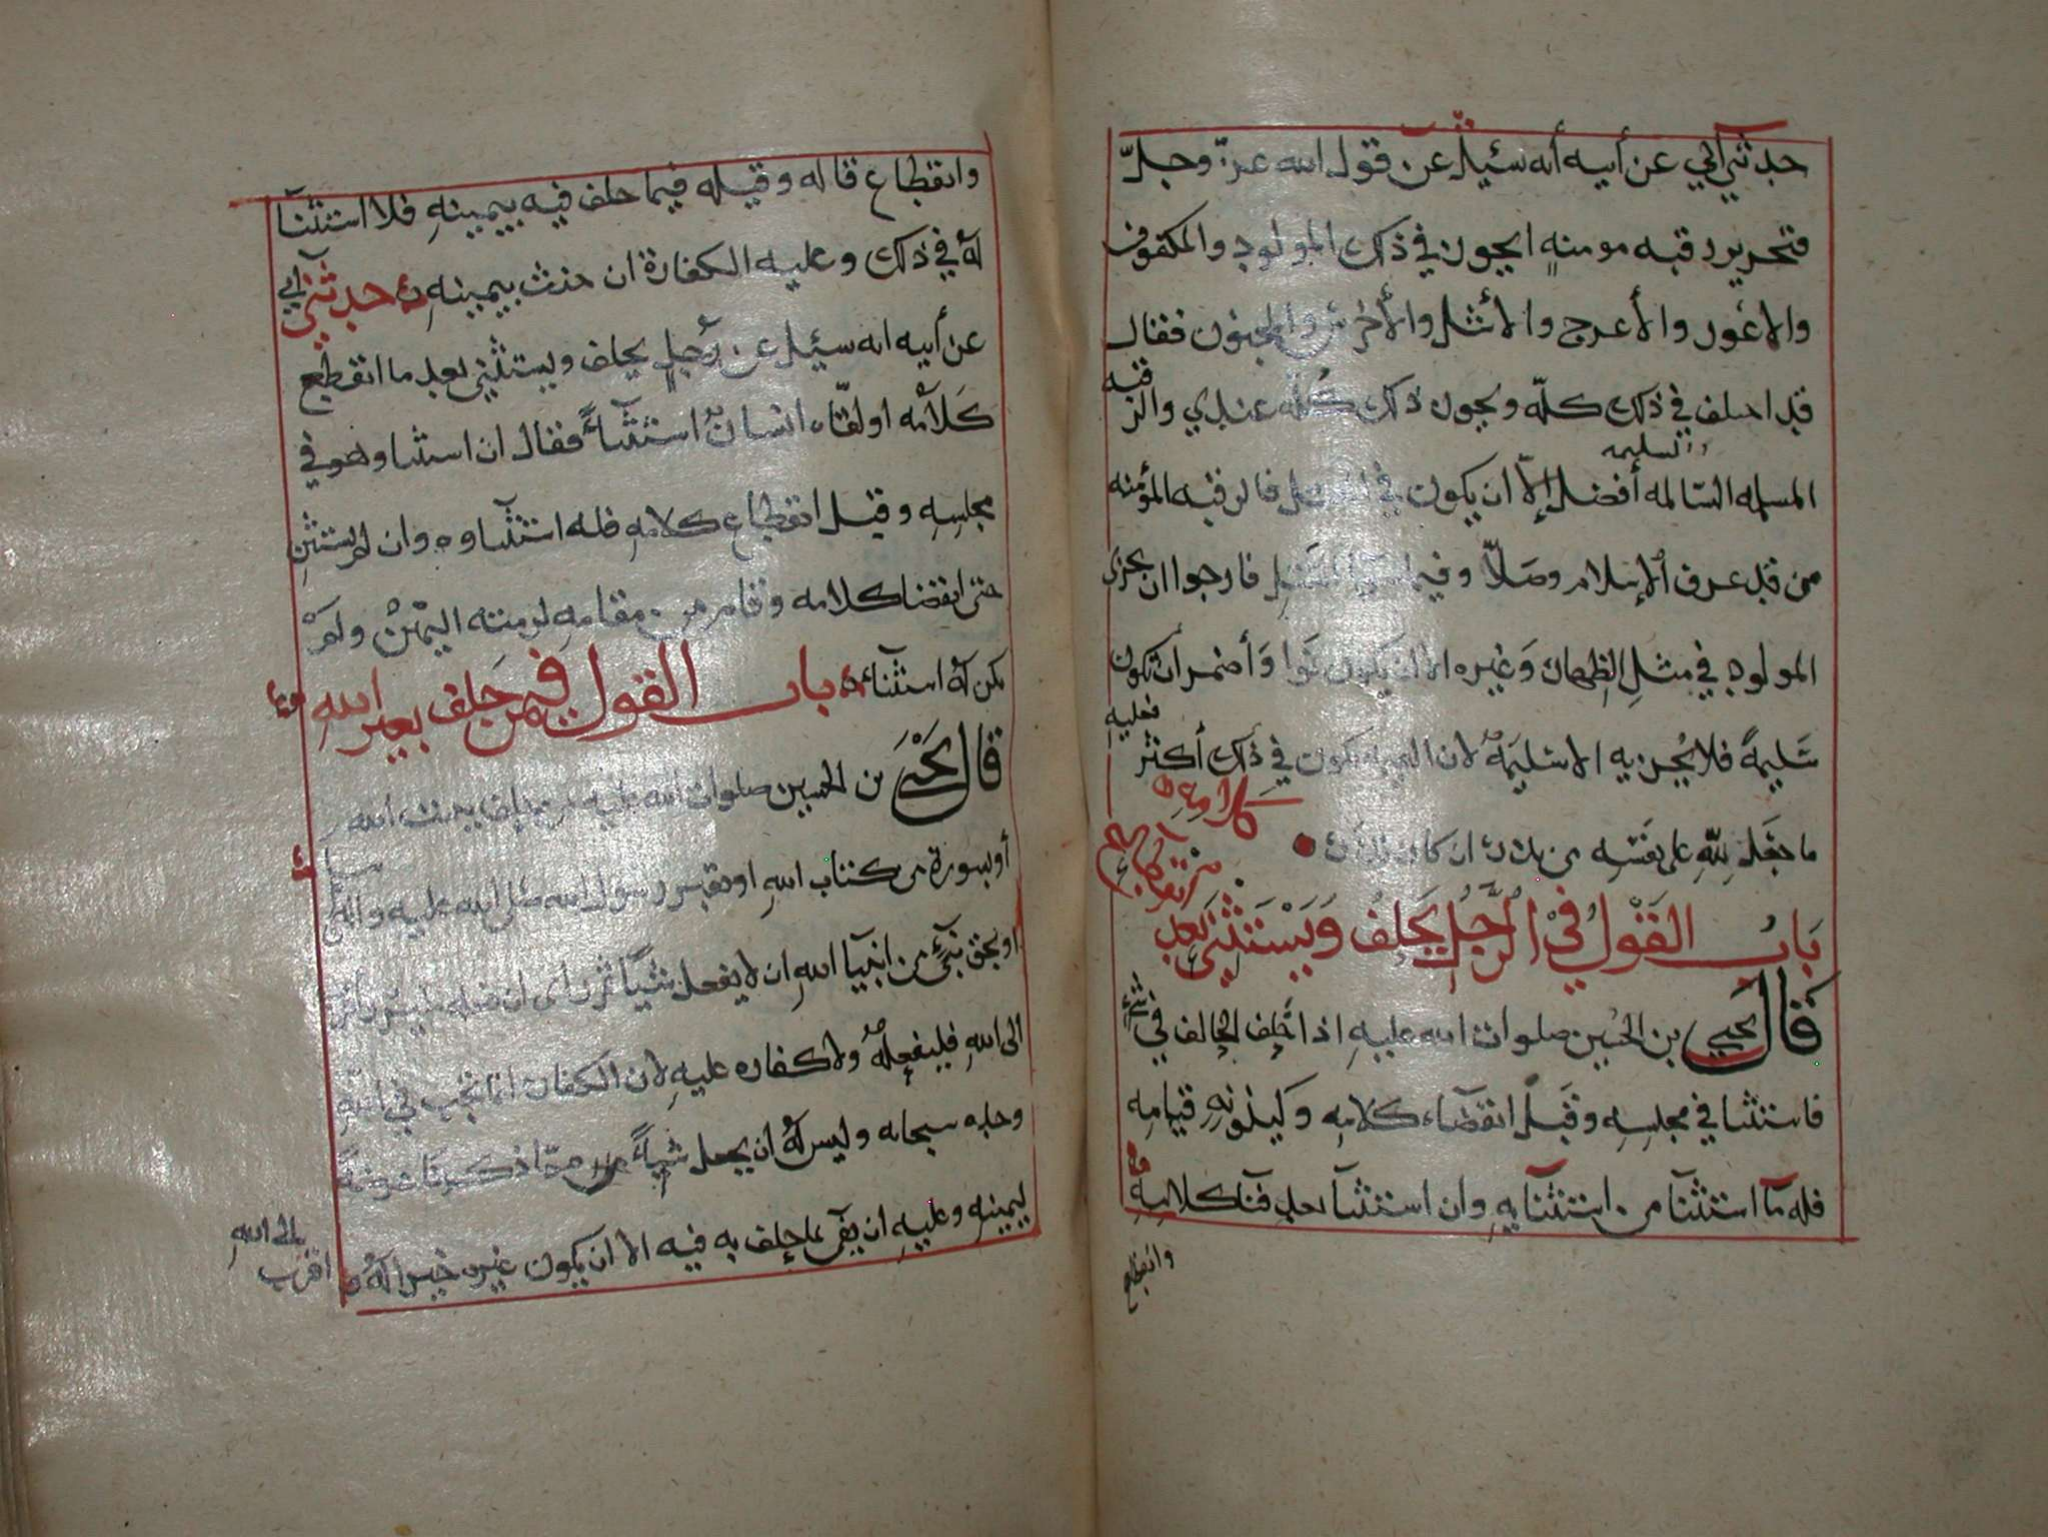 حدثني أبي عن أبيه أنه سئيل عن قول الله عزّ وجلّ
فتحرير رقبه مومنهٍ ايجون في ذلك المولود والمكفوف
والاعور والأعرج والأشل والأخرس والمجنون فقال
قد اختلف في ذلك كلّه ويجون ذلك كلّه عندي والرقبه
المسلمه السّالمه أفضل إلّا ان يكون في فالرقبه المؤمنه
والسليمه
من قد عرف الإسلام وصَلّا وفيما القتل فارجوا ان يجزي
المولود في مثلِ الظهان وَغيره الا ان يكون نَوا وَأضمر ان تكون
سَليمةً فلا يُجزيه الا سَليمَة لان النيه تكون في ذلك أكثر فعليه
ما جعَل للّهِ على نفسِه من ان كان
بَابُ القَوْل فيْ الرَّجُل يَحلِفُ وَيَسْتَثنى بَعد
انقطاع كلامه
قَال يحيى بن الحُسين صلوات الله عليهِ اذا حَلِف الحالف في شيْءٍ
فاستثنا في مجلسِه وقبَل انقضاء كلامِه وَكينونهِ قيامِه
فله مَا استثنآ من استثنآيهِ وان استثنآ بعد فنآ كلامِهِ
وانقطاع
وانقطاع قاله وقيله فيما حلف فيه بيمينهِ فلا استثنآ
لهُ في ذلك وعليه الكفارة ان حنث بيمينهِ حدثني أبي
عن أبيه انه سئيل عن رجُلٍ يحلف ويستثني بعد ما انقطع
كَلامُه او لقّاه انسانٌ استثنآءً فقال ان استثنا وهو في
مجلسِه وقبل انقطاع كلامهِ فله استثنآوه وان لم يستثنِ
حتى انقضا كلامه وقام من مقامهِ لزمته اليَمْيْن ولَمْ
يكن لهُ استثنآء باب القول فيمن حَلِف بغير اللهِ
قَال يَحْيَى بن الحسين صلوات الله عليه من حلف ببيت الله
أو بسورة من كتاب اللهِ او بقبر رسول الله صلى الله عليه واله
او بحق نبيٍّ من انبيآ اللهِ ان لا يفعل شيئاً ثم رأى ان فعله
الى اللهِ فليفعلهُ ولا كفاره عليهِ لان الكفارة انما تجب في
وحده سبحانه وليس لهُ ان يجعل شيئاً من مّما ذكرنا عرضةً
ليمينهِ وعليهِ ان يفي بما حلف به فيه الا ان يكون غيره خيراً لهُ و
اقرب
الى اللهِ